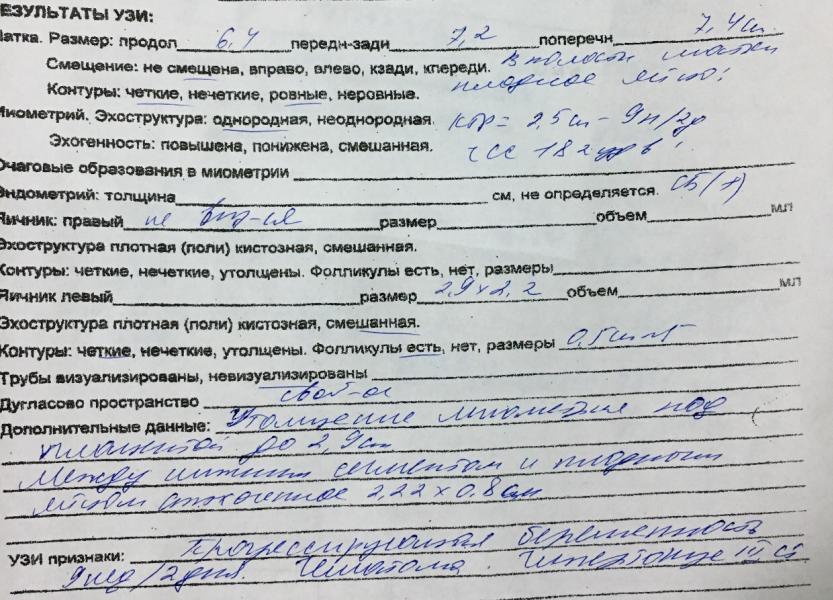 ЕЗУЛЬТАТЫ УЗИ:
Матка. Размер: продол 6,4 передн-зади 7,2 поперечн 7,4см
Смещение: не смещена, вправо, влево, кзади, кпереди. В полости матки
Контуры: четкие, нечеткие, ровные, неровные. плодное яйцо!
Миометрий. Эхоструктура: однородная, неоднородная. КТР = 2,5см - 9н/2д
Эхогенность: повышена, понижена, смешанная. ЧСС 182 уд в '
Очаговые образования в миометрии
Эндометрий: толщина см, не определяется. СБ(+)
Яичник: правый не виз-ся размер объем мл
Эхоструктура плотная (поли) кистозная, смешанная.
Контуры: четкие, нечеткие, утолщены. Фолликулы есть, нет, размеры
Яичник левый размер 2,9 x 2,2 объем мл
Эхоструктура плотная (поли) кистозная, смешанная.
Контуры: четкие, нечеткие, утолщены. Фолликулы есть, нет, размеры 0,5см
Трубы визуализированы, невизуализированы
Дугласово пространство своб-ое
Дополнительные данные: Утолщение миометрия под
плацентой до 2,9см
Между нижним сегментом и плодным
яйцом отхождение 2,22 x 0,8 см
УЗИ признаки: Прогрессирующая беременность
9нед/2дня. Гематома. Гипертонус III ст